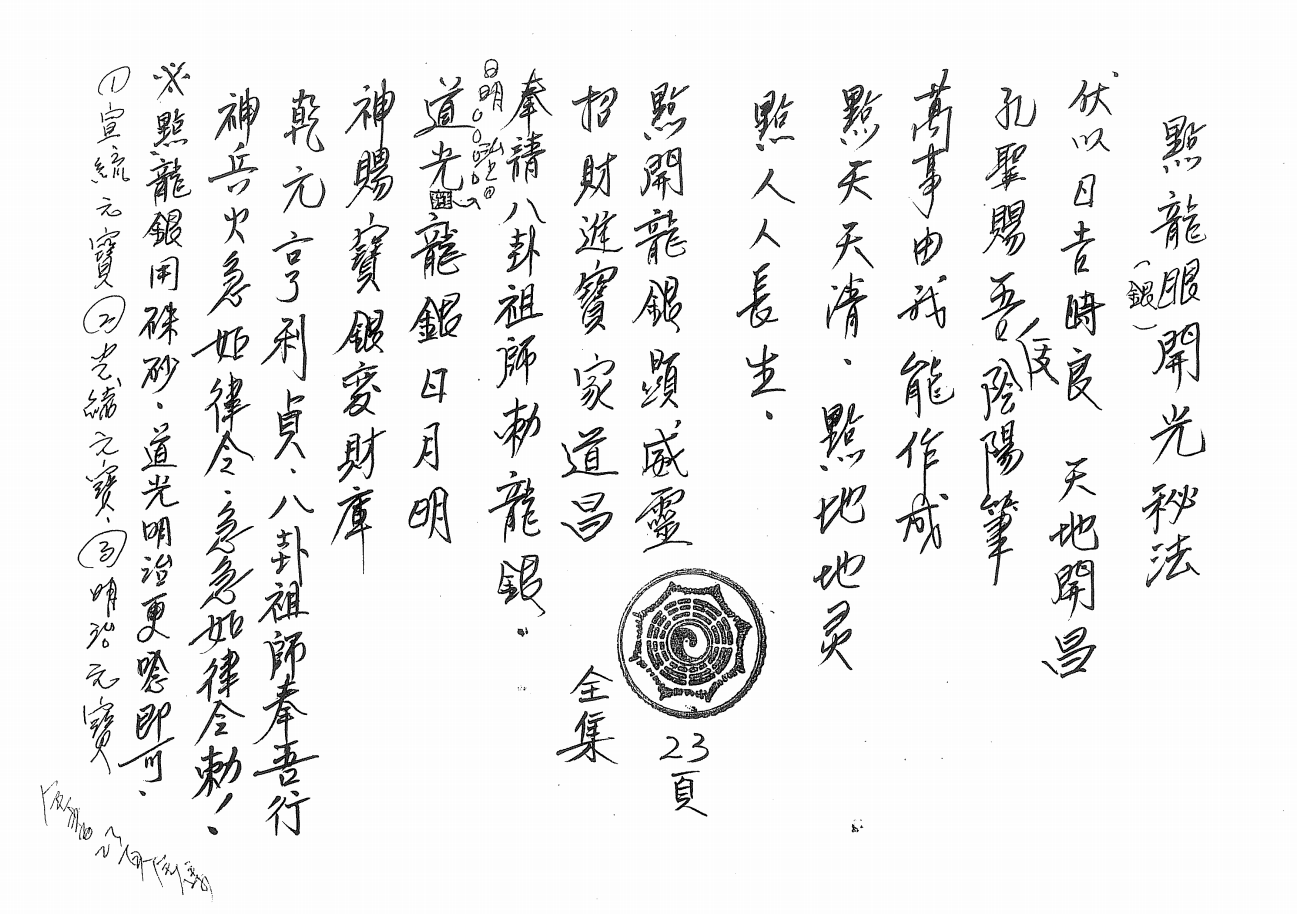 點龍眼開光秘法
(銀)
伏以日吉時良 天地開昌
孔聖賜吾陰陽筆
萬事由我能作成
點天天清、點地地灵
點人人長生.
點開龍銀顯威靈
招財進寶家道昌
23頁
全集
奉請八卦祖師勅龍銀.
道光龍銀日月明
日明
神賜寶銀變財庫
乾元亨利貞、八卦祖師奉吾行
神兵火急如律令.急急如律令勅!
※點龍銀用硃砂.道光明治更唸即可.
①宣統元寶②光緒元寶.③明治元寶